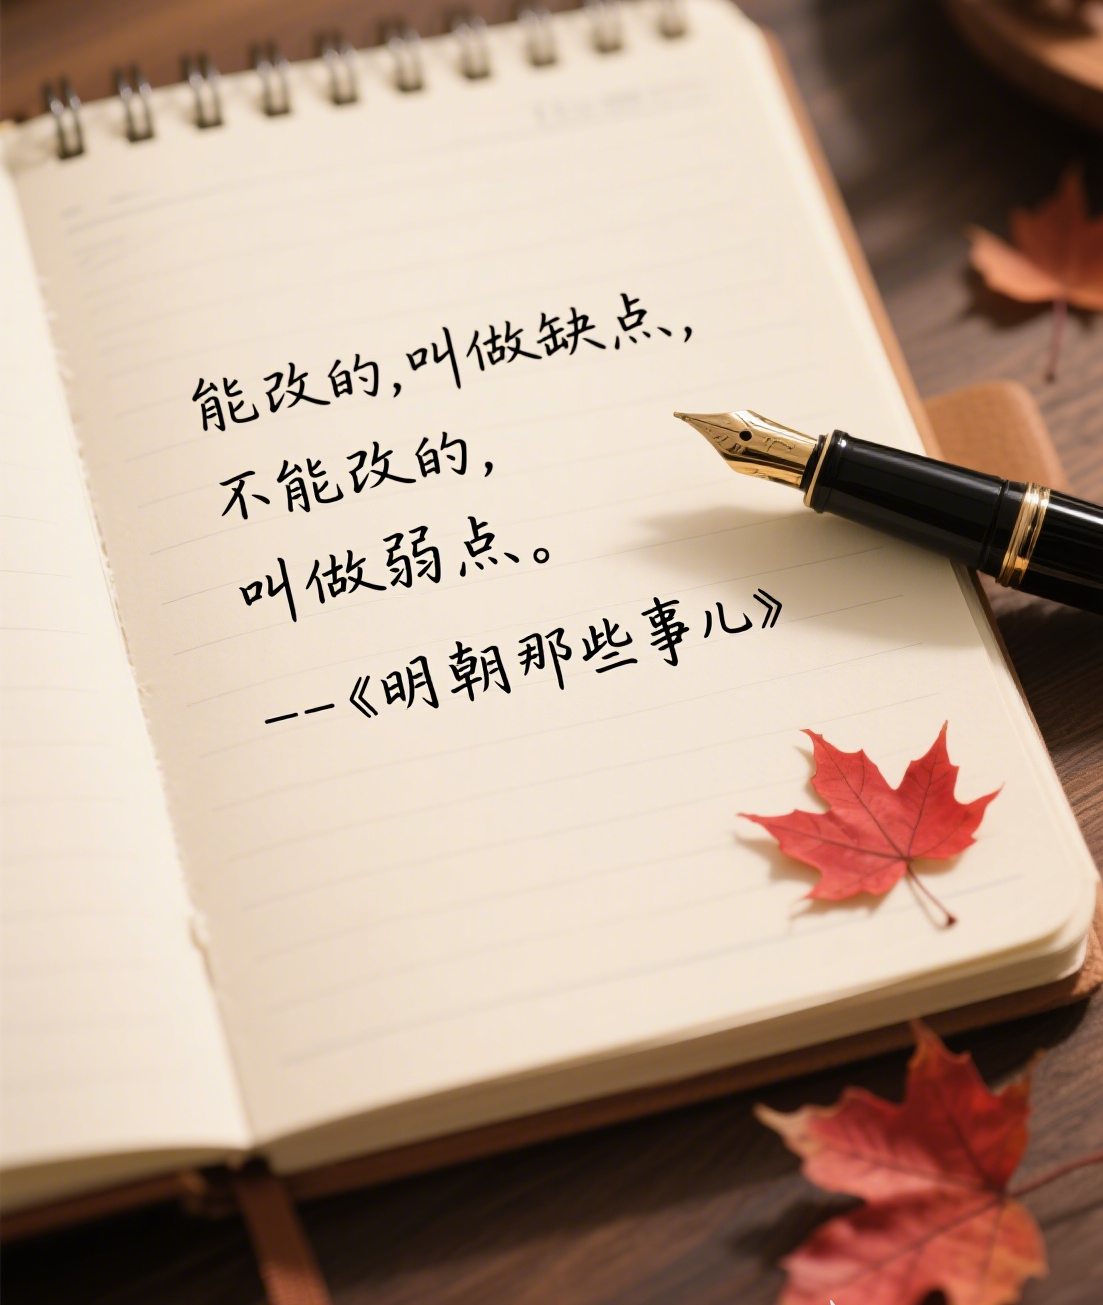 能改的,叫做缺点,
不能改的,
叫做弱点。
--《明朝那些事儿》